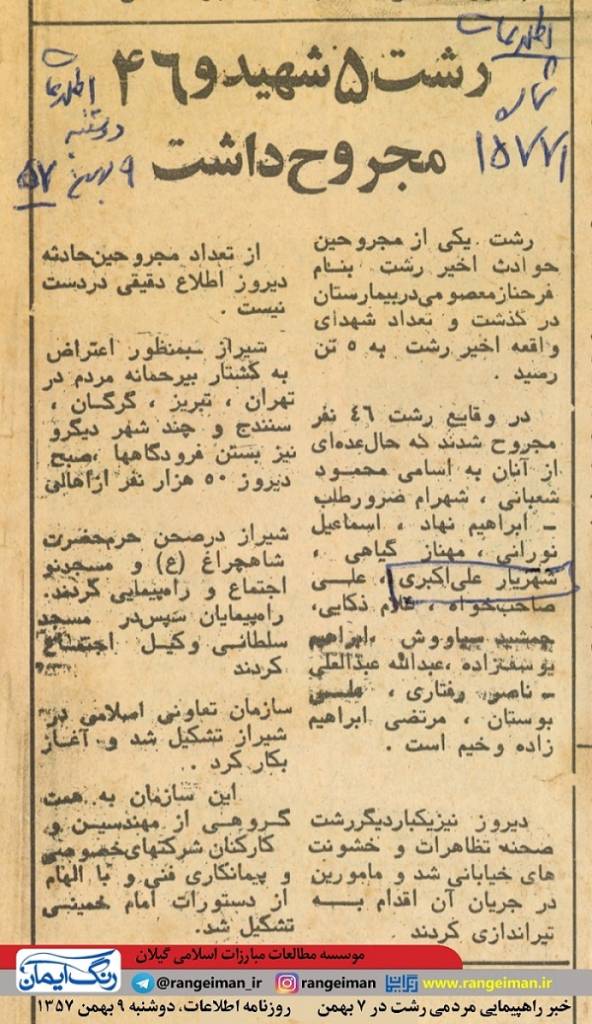 اطلاعات
شماره
۱۵۷۷۱
اطلاعات
دوشنبه
۹ بهمن ۵۷
رشت ۵ شهید و ۴۶
مجروح داشت
رشت. یکی از مجروحین
حوادث اخیر رشت بنام
فرحناز معصومی در بیمارستان
در گذشت و تعداد شهدای
واقعه اخیر رشت به ۵ تن
رسید .
در وقایع رشت ۴۶ نفر
مجروح شدند که حال عده‌ای
از آنان به اسامی محمود
شعبانی ، شهرام ضرورطلب
ـ ابراهیم نهاد ، اسماعیل
نورانی ، مهناز گیاهی ،
شهریار علی‌اکبری ، علی
صاحب‌خواه ، غلام ذکایی،
جمشید سیاووش ، ابراهیم
یوسفزاده ، عبدالله عبدالعلی
ـ ناصر رفتاری ، علی
بوستان ، مرتضی ابراهیم
زاده وخیم است .
دیروز نیز یکبار دیگر رشت
صحنه تظاهرات و خشونت
های خیابانی شد و مامورین
در جریان آن اقدام به
تیراندازی کردند .
از تعداد مجروحین حادثه
دیروز اطلاع دقیقی در دست
نیست .
شیراز ـ بمنظور اعتراض
به کشتار بیرحمانه مردم در
تهران ، تبریز ، گرگان ،
سنندج و چند شهر دیگر و
نیز بستن فرودگاهها ، صبح
دیروز ۵۰ هزار نفر از اهالی
شیراز در صحن حرم حضرت
شاهچراغ (ع) و مسجد نو
اجتماع و راه‌پیمایی کردند.
راه‌پیمایان سپس در مسجد
سلطانی وکیل اجتماع
کردند
سازمان تعاونی اسلامی در
شیراز تشکیل شد و آغاز
بکار کرد .
این سازمان به همت
گروهی از مهندسین و
کارکنان شرکتهای خصوصی
و پیمانکاری فنی و با الهام
از دستورات امام خمینی
تشکیل شد.
موسسه مطالعات مبارزات اسلامی گیلان
رنگ ایمان
@rangeiman_ir
rangeiman_ir
وبسایت
www.rangeiman.ir
خبر راهپیمایی مردمی رشت در ۷ بهمن روزنامه اطلاعات، دوشنبه ۹ بهمن ۱۳۵۷